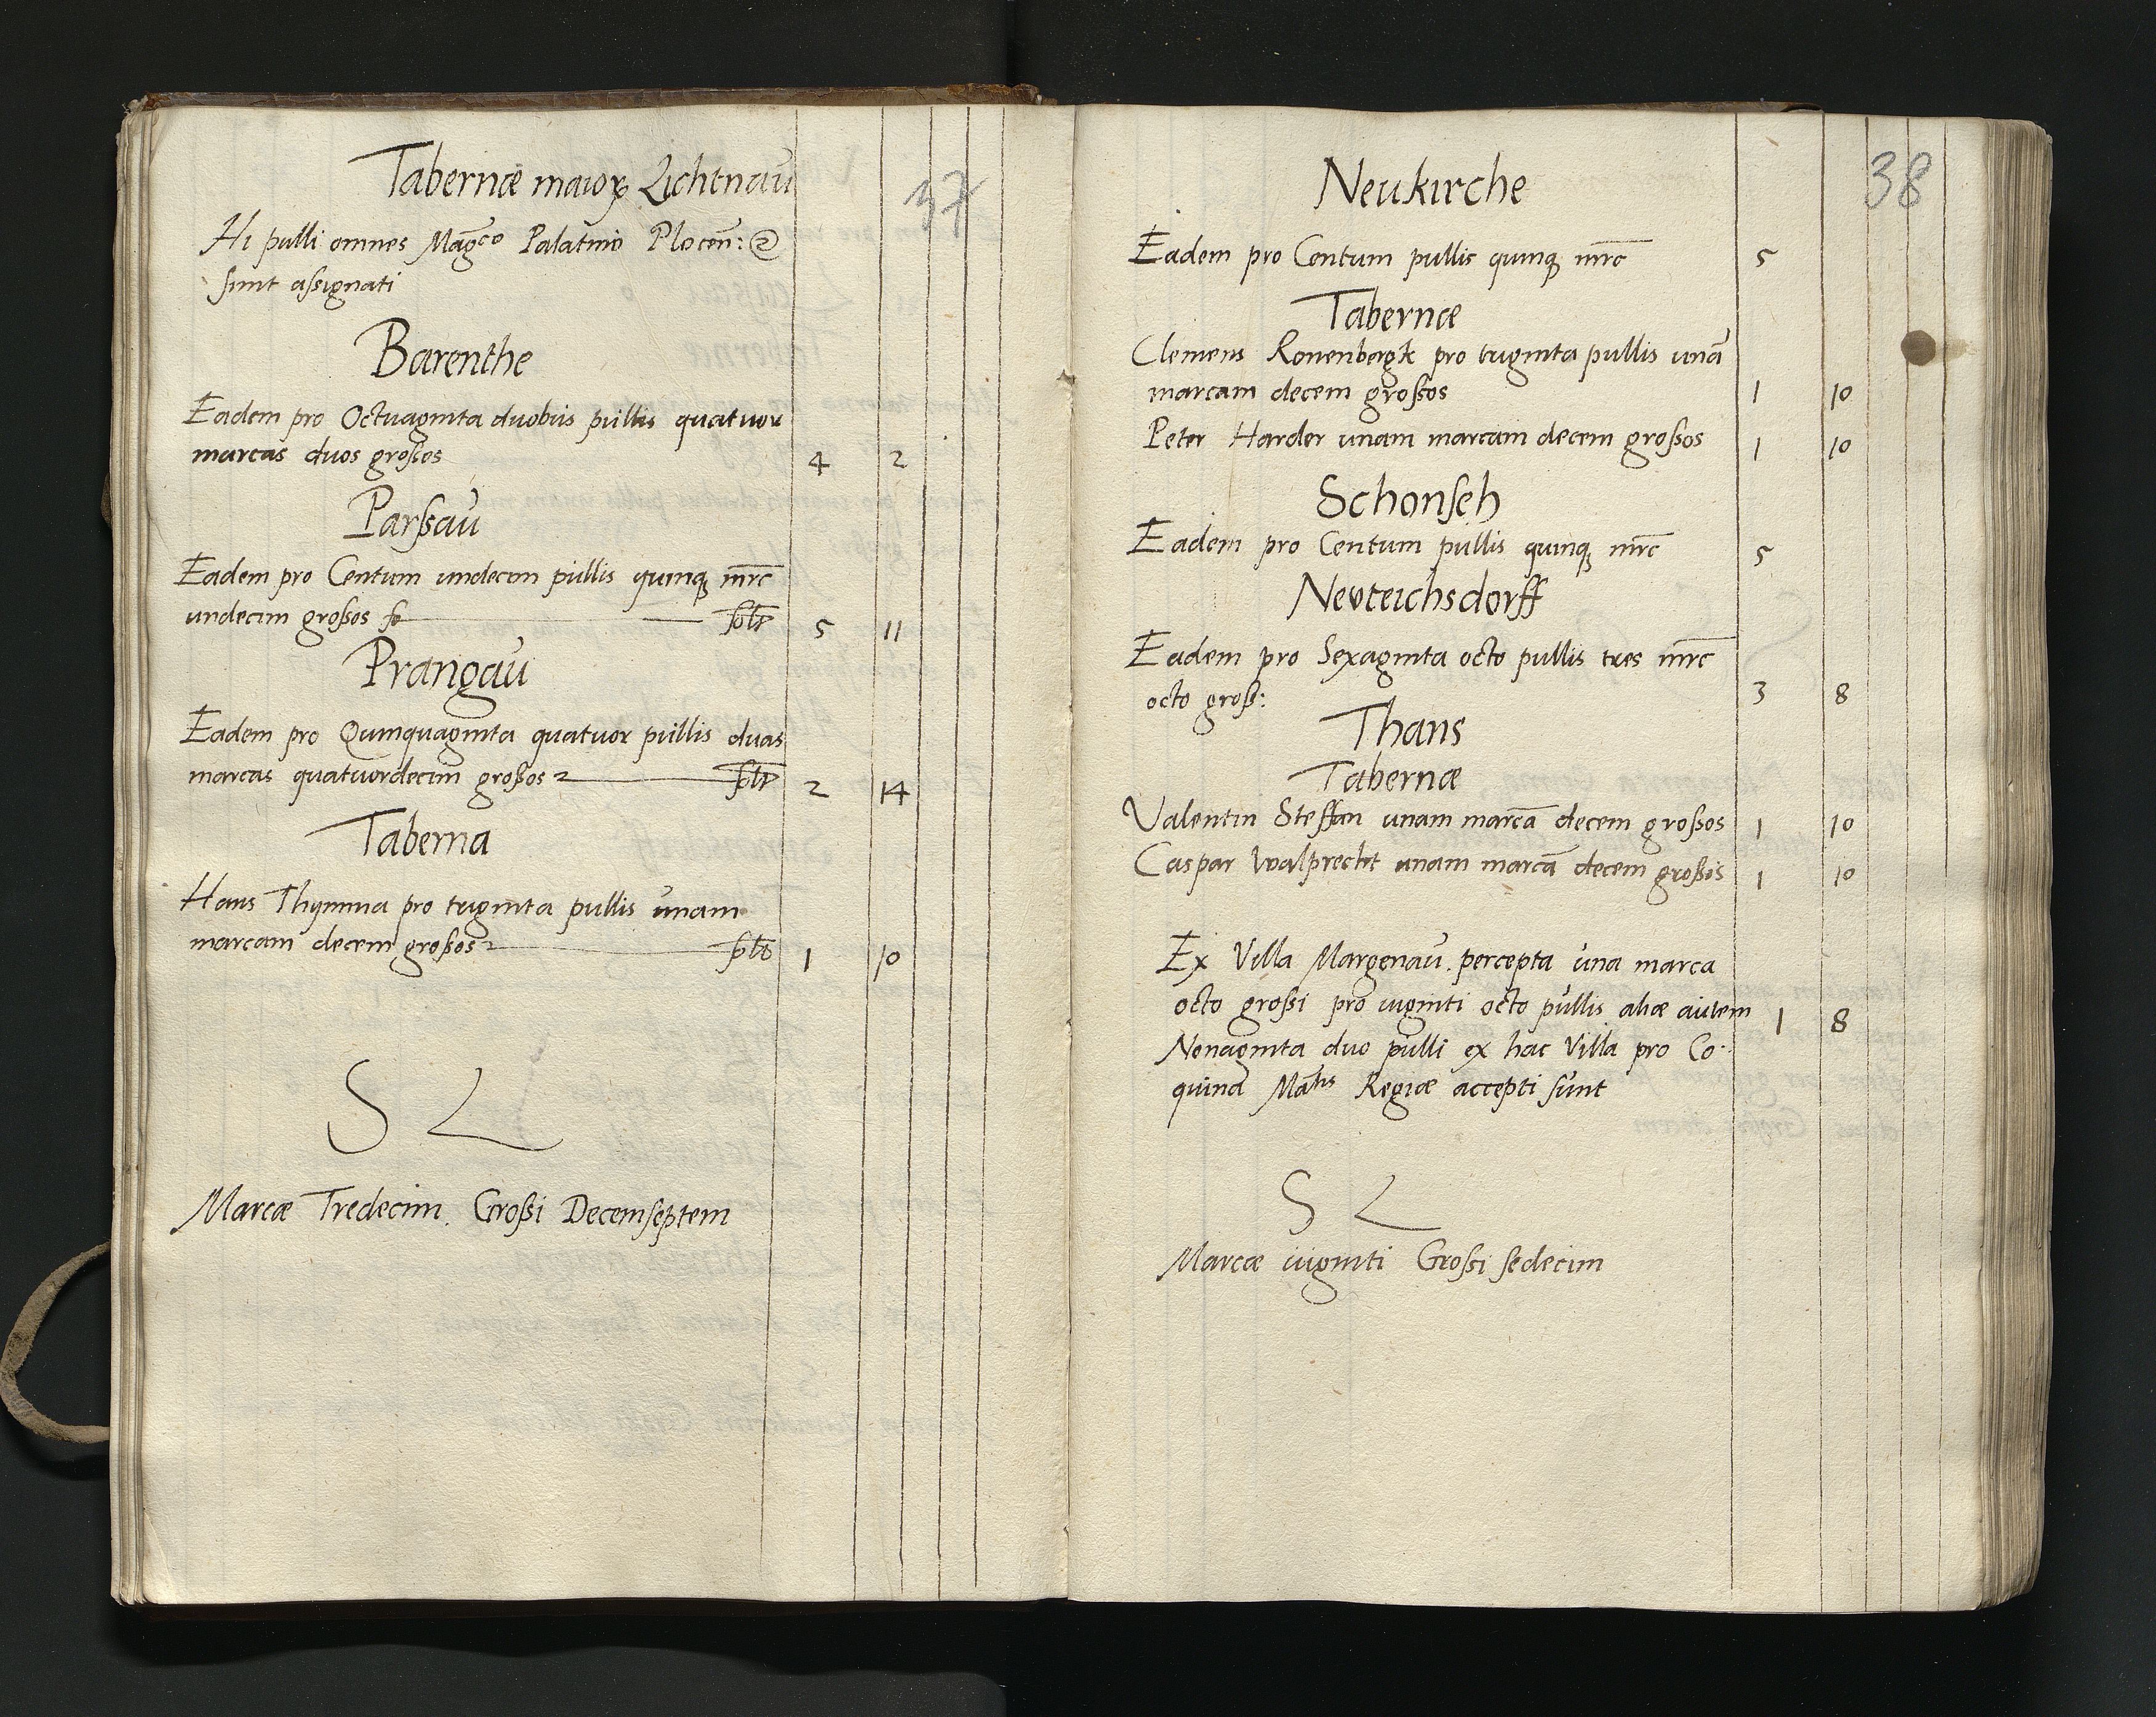 Tabernæ maior Lichtnau
37
Hi pulli omnes Mag^co Palatino Plocen:
sunt assignati
Barenthe
Eadem pro Octuaginta duobus pullis quatuor
marcas duos grossos 4 2
Parssau
Eadem pro Centum undecim pullis quinq mrc
undecim grossos 5 11
Prangau
Eadem pro Quinquaginta quatuor pullis duas
marcas quatuordecim grossos 2 14
Taberna
Hans Thymma pro triginta pullis unam
marcam decem grossos 1 10
S L
Marcæ Tredecim. Grossi Decemseptem
38
Neukirche
Eadem pro Centum pullis quinq mrc 5
Tabernæ
Clemens Ronenbergk pro triginta pullis unā
marcam decem grossos 1 10
Peter Harder unam marcam decem grossos 1 10
Schonseh
Eadem pro Centum pullis quinq mrc 5
Neuteichsdorff
Eadem pro Sexaginta octo pullis tres mrc
octo gross: 3 8
Thans
Tabernæ
Valentin Steffan unam marcā decem grossos 1 10
Caspar Walprecht unam marcā decem grossos 1 10
Ex Villa Margenau. percepta una marca
octo grossi pro viginti octo pullis aliæ autem 1 8
Nonaginta duo pulli ex hac Villa pro Co-
quina Ma^tis Regiæ accepti sunt
S L
Marcæ viginti Grossi sedecim